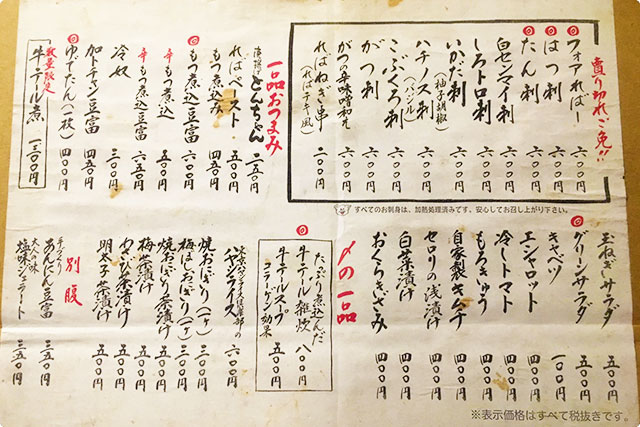 売り切れご免!!
フォアればー 六〇〇円
はつ刺 六〇〇円
たん刺 六〇〇円
白センマイ刺 六〇〇円
しろトロ刺 六〇〇円
いかだ刺(柚子胡椒) 六〇〇円
ハチノス刺(バジル) 六〇〇円
こぶくろ刺 六〇〇円
がつ刺 六〇〇円
がつ辛味噌和え 六〇〇円
ればねぎ串(ればテキ風) 二〇〇円
※すべてのお刺身は、加熱処理済みです。安心してお召し上がり下さい。
一品おつまみ
とんちゃん 二五〇円
ればペースト 五〇〇円
もつ煮込み 四五〇円
もつ煮込豆富 六〇〇円
辛もつ煮込 五〇〇円
辛もつ煮込豆富 六五〇円
冷奴 三〇〇円
加トチャン豆富 四五〇円
ゆでたん(一枚) 四〇〇円
数量限定
牛テール煮 一三〇〇円
玉ねぎサラダ 五〇〇円
グリーンサラダ 五〇〇円
キャベツ 一〇〇円
エシャロット 四〇〇円
冷しトマト 四〇〇円
もろきゅう 四〇〇円
自家製キムチ 四〇〇円
セロリの浅漬け 四〇〇円
白菜漬け 四〇〇円
おくらきざみ 四〇〇円
〆の一品
たっぷり煮込んだ
牛テール雑炊 八〇〇円
牛テールスープ 五〇〇円
コラーゲン効果
ハヤシライス 六〇〇円
焼おにぎり(一ヶ) 三〇〇円
梅ぼしおにぎり(一ヶ) 三〇〇円
焼おにぎり茶漬け 五〇〇円
梅茶漬け 五〇〇円
わさび茶漬け 五〇〇円
明太子茶漬け 五〇〇円
別腹
手づくり
あんにん豆富 三五〇円
大人の味
塩味ジェラート 三五〇円
※表示価格はすべて税抜きです。